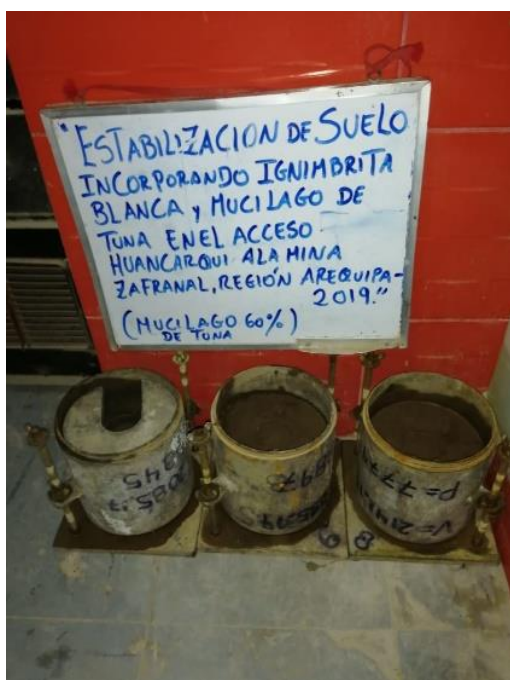 "ESTABILIZACION DE SUELO
INCORPORANDO IGNIMBRITA
BLANCA y MUCILAGO DE
TUNA EN EL ACCESO
HUANCARQUI A LA MINA
ZAFRANAL, REGIÓN AREQUIPA-
2019."
(MUCILAGO 60%)
DE TUNA